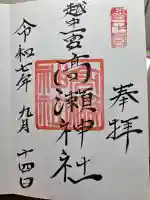 奉拝
越中一宮
高瀬神社
令和七年九月十四日